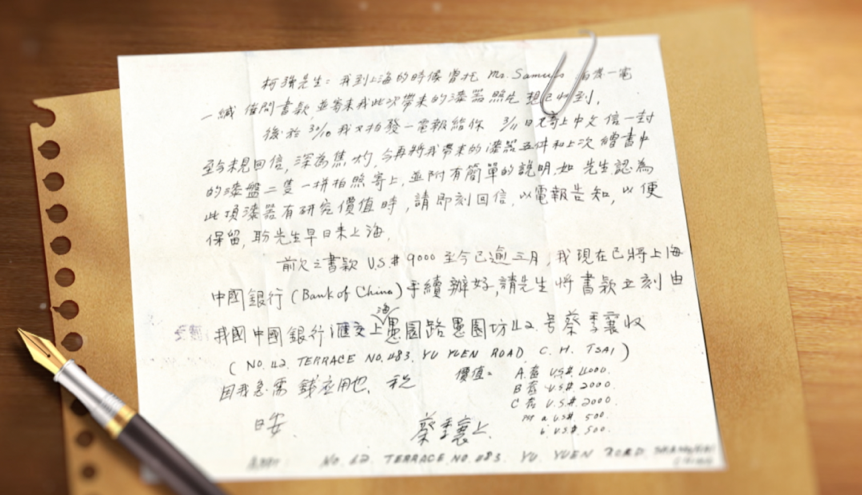 柯強先生：我到上海的時候曾托 Mr. Samuels 一電
一緘 值問書款，並寄来我此次帶来的漆器照片想已收到。
後於 30/10 我又拍發一電報給你 3/11 日又寄上中文信一封
至今未見回信，深為焦灼，今再將我帶来的漆器五件和上次繒書中
的漆盤二隻一併拍照寄上，並附有簡單的說明，如 先生認為
此項漆器有研究價值時，請即刻回信，以電報告知，以便
保留，盼先生早日来上海。
前欠之書款 U.S.$ 9000 至今已逾三月，我現在已將上海
中國銀行 (Bank of China) 手續辦好，請先生將書款立刻由
我國中國銀行滙交上海愚園路愚園坊42号蔡季襄收
( NO. 42. TERRACE NO. 483. YU YUEN ROAD C. H. TSAI )
因我急需錢应用也，祝
價值：A.壺 U.S.$. 4000.
B 壺 U.S.$. 2000.
C 壺 U.S.$. 2000.
a U.S.$. 500.
b U.S.$. 500.
日安
蔡季襄上
NO. 42 TERRACE NO. 483. YU. YUEN ROAD. SHANGHAI
CHINA